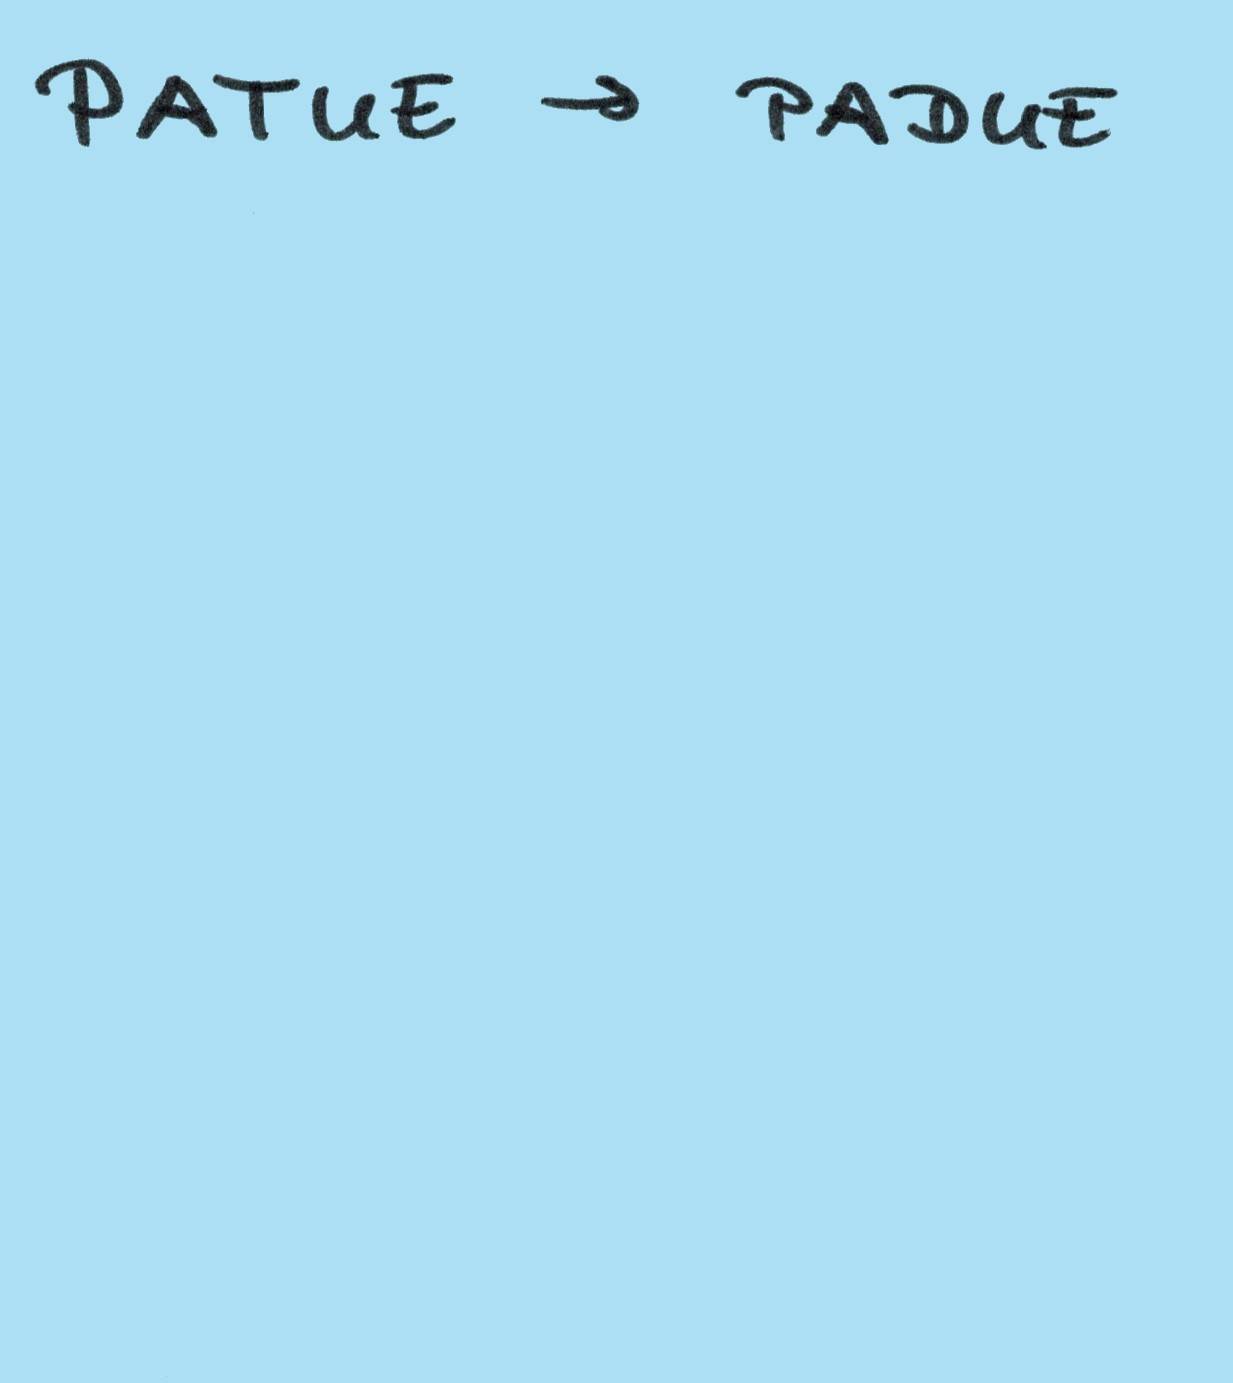 PATUE → PADUE